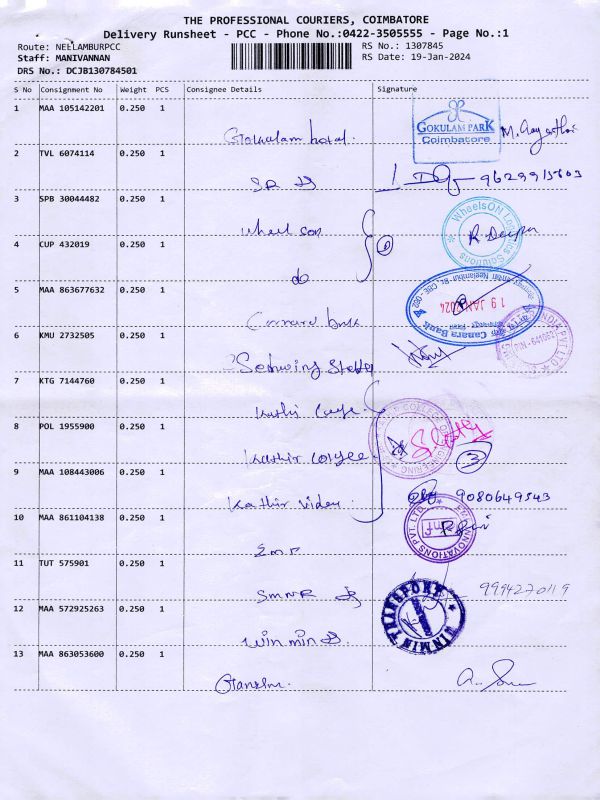 THE PROFESSIONAL COURIERS, COIMBATORE
Delivery Runsheet - PCC - Phone No.:0422-3505555 - Page No.:1
Route: NEELAMBURPCC
RS No.: 1307845
Staff: MANIVANNAN
RS Date: 19-Jan-2024
DRS No.: DCJB130784501
S No Consignment No Weight PCS Consignee Details Signature
1 MAA 105142201 0.250 1
Gokulam hotel. GOKULAM PARK Coimbatore
2 TVL 6074114 0.250 1
3 SPB 30044482 0.250 1
wheel son WheelsON Solutions R. Deepa
4 CUP 432019 0.250 1
do
5 MAA 863677632 0.250 1
Canara bank Canara Bank 19 JAN 2024
6 KMU 2732505 0.250 1
7 KTG 7144760 0.250 1
Kathir
8 POL 1955900 0.250 1
Kathir COLLEGE OF ENGINEERING 3
9 MAA 108443006 0.250 1
Kathir 9080649543
10 MAA 861104138 0.250 1
E.M.F EMF INNOVATIONS PVT. LTD.
11 TUT 575901 0.250 1
SMNR 9994270119
12 MAA 572925263 0.250 1
Win min WINMIN TRANSPORT
13 MAA 863053600 0.250 1